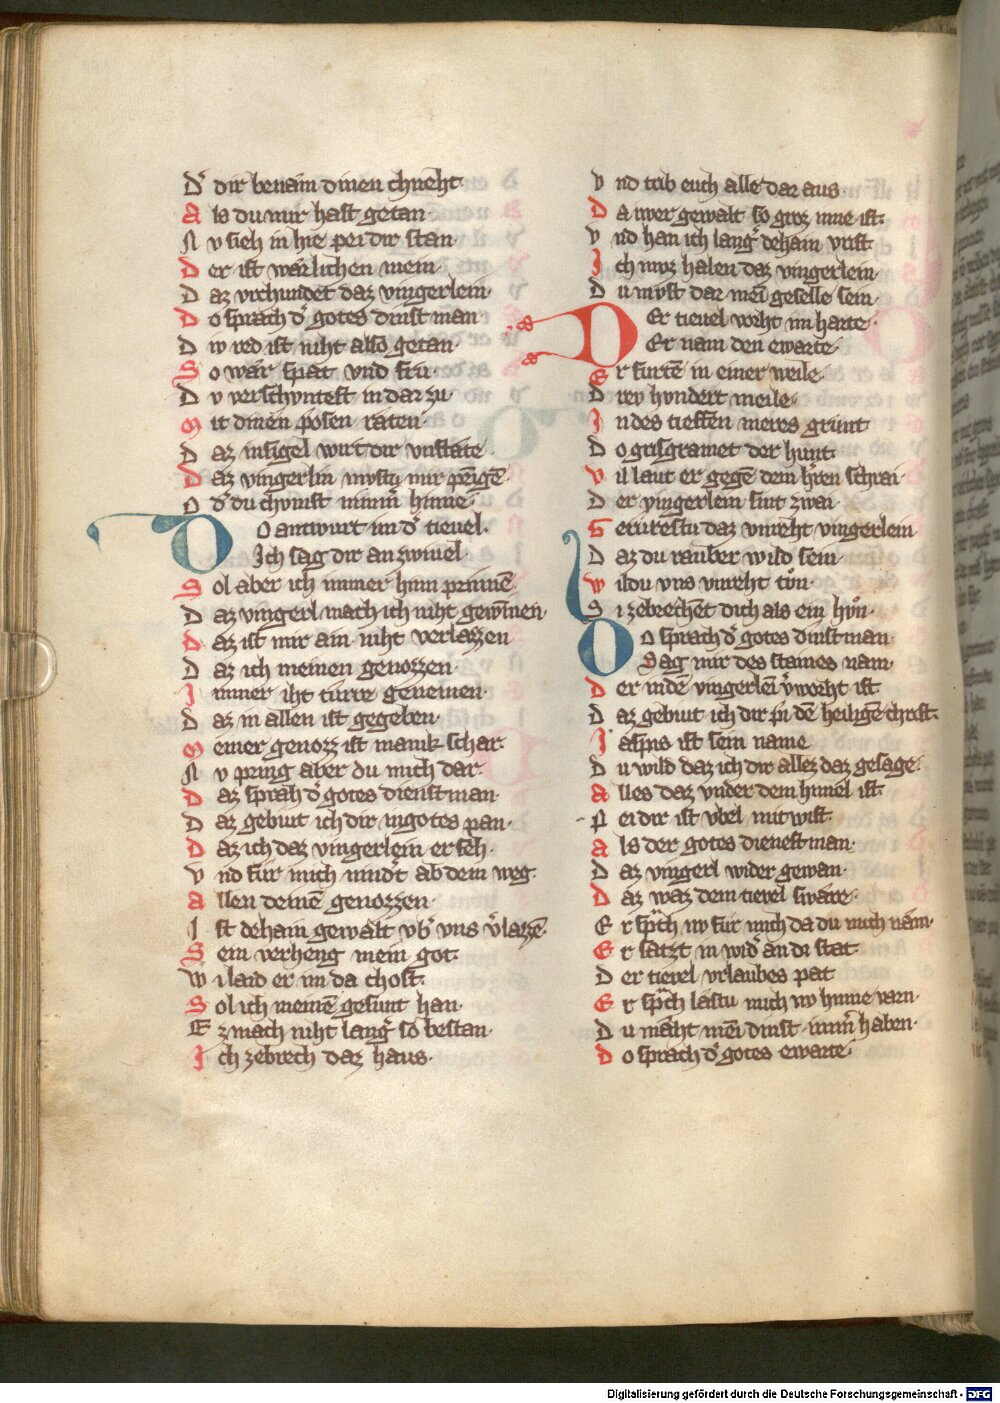 Dˢ dir benam dinen chneht.
Als du mir hast getan.
Nv sieh in hie pei dir stan.
Der ist wårlichen mein
Daz vrchundet daz vingerlein.
Do sprach dˢ gotes dinst man
Div red ist niht also getan.
So wår spat vnd frů.
Dv verschuntest in dar zu
Mit dinen posen råten.
Daz insigel wirt dir vnståte.
Daz vingerlin mvstu mir
Odˢ du chvmst nimmˢ hinne.
Do antwurt im dˢ tieuel.
Ich sag dir an zwiuel
Sol aber ich immer hinn prinnē
Daz vingerl mach ich niht gewinen.
Daz ist mir ain niht verlazzen
Daz ich meinen genozzen.
Immer iht turre genemen.
Daz in allen ist gegeben.
Meiner genozz ist manik schar.
Nv pring aber du mich dar.
Daz sprah dˢ gotes dienst man.
Daz gebiut ich dir in gotes pan.
Daz ich daz vingerlein erseh.
Vnd fůr mich nindˢt ab dem weg.
Allen deinē genozzen.
Ist dehain gewalt vbˢ vns vˢlazzē.
Sein verheng mein got.
Wi laid er im da chost.
Sol ich meinē gesunt han.
Ez mach niht langˢ so bestan.
Ich zebrech daz haus.
Vnd trib euch alle dar aus.
Da iwer gewalt so groz inne ist.
Vnd han ich langˢ dehain vrist.
Ich mvz halen daz vingerlein.
Du mvst dar mei geselle sein.
Der tieuel vorht im harte.
Er nam den ewarte.
Er furtē in einer weile.
Drev hvndert meile.
In des tieffen meres grunt
Do grisgramet der hunt.
Vil laut er gegē dem hˢren schrai.
Der vingerlein sint zwai.
Gerurestu daz vnreht vingerlein
Daz du rauber wild sein
Wildu vns vnreht tůn.
Si zebrechēt dich als ein hůn.
Do sprach dˢ gotes dinst man
Sag mir des staines nam.
Der in dē vingerlei vˢworht ist
Daz gebiut ich dir pi dē heiligē christ.
Jaspis ist sein name
Du wild daz ich dir allez daz gesage.
Alles daz vnder dem himel ist
Pei dir ist vbel mit wist.
Als der gotes dienest man.
Daz vingerl wider gewan.
Daz waz dem tievel swåre.
Er spˢch nv fůr mich da du mich nåm.
Er satzt in widˢ an di stat.
Der tievel vrlaubes pat
Er spˢch låstu mich nv hinne varn.
Du måht mei dinst immˢ haben.
Do sprach dˢ gotes ewarte.
Digitalisierung gefördert durch die Deutsche Forschungsgemeinschaft - DFG